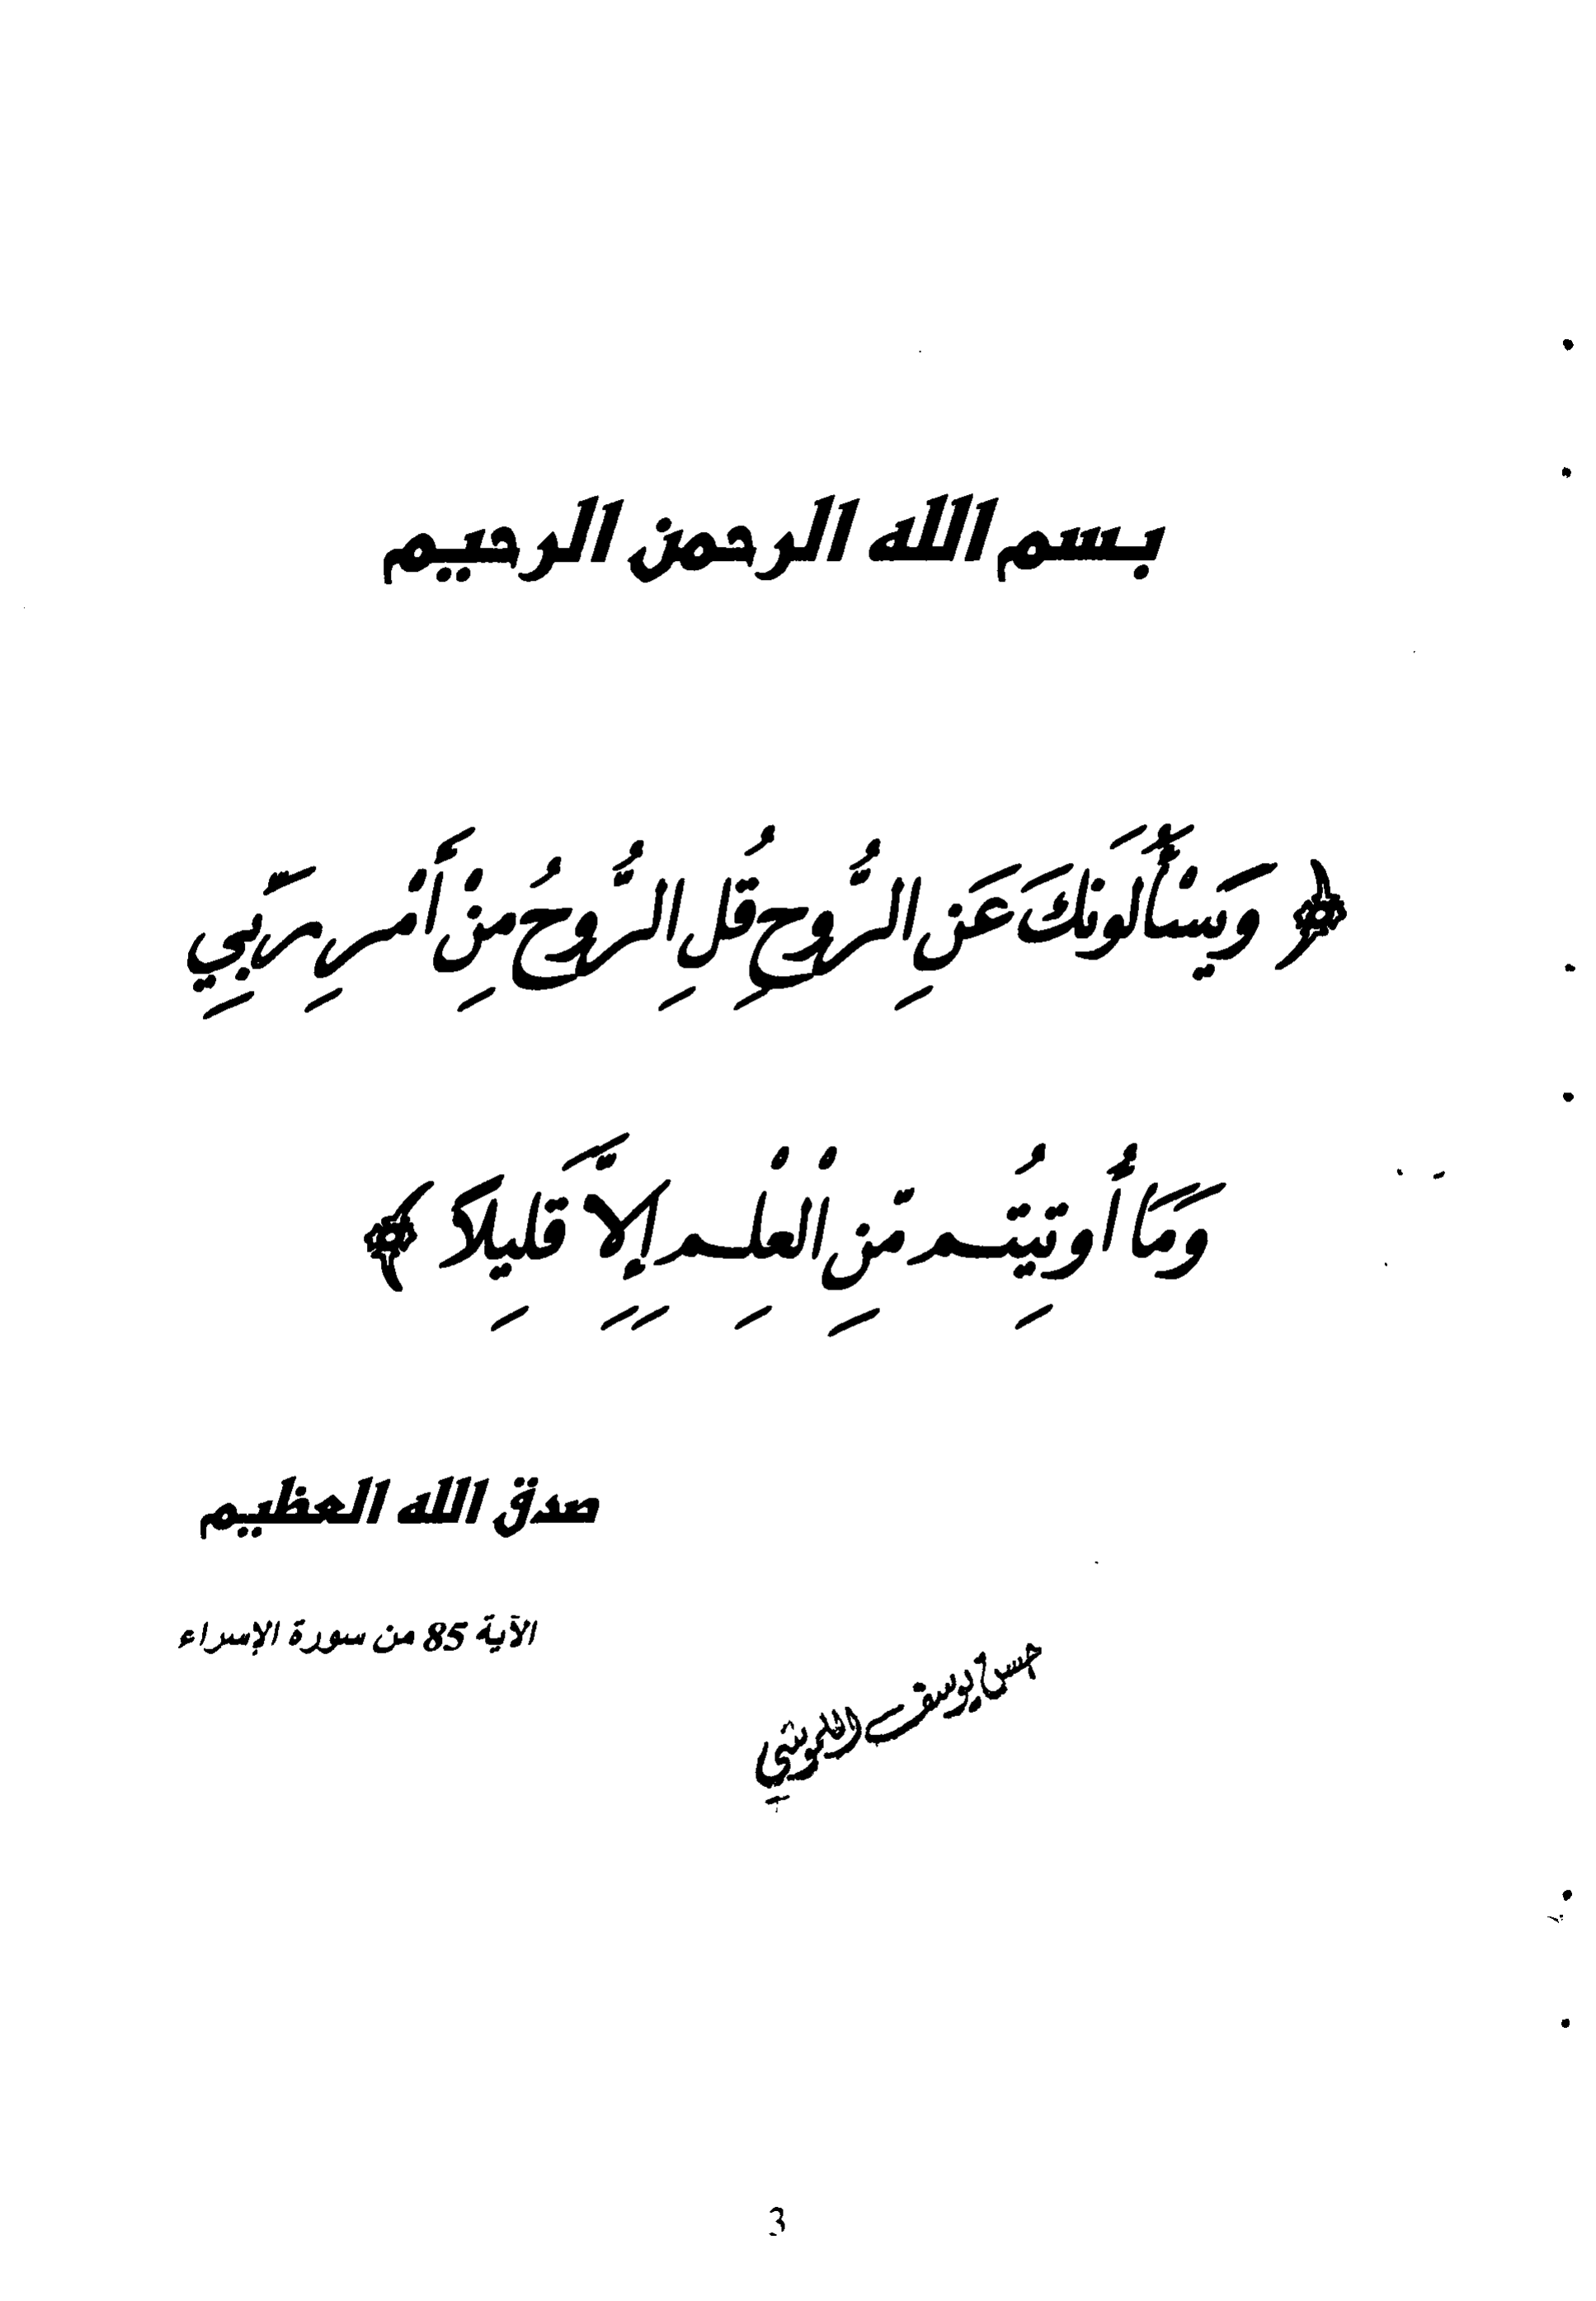 بسم الله الرحمن الرحيم
﴿ وَيَسْأَلُونَكَ عَنِ الرُّوحِ قُلِ الرُّوحُ مِنْ أَمْرِ رَبِّي
وَمَا أُوتِيتُم مِّنِ الْعِلْمِ إِلاَّ قَلِيلاً ﴾
صدق الله العظيم
الآية 85 من سورة الإسراء
حسن يوسف
3